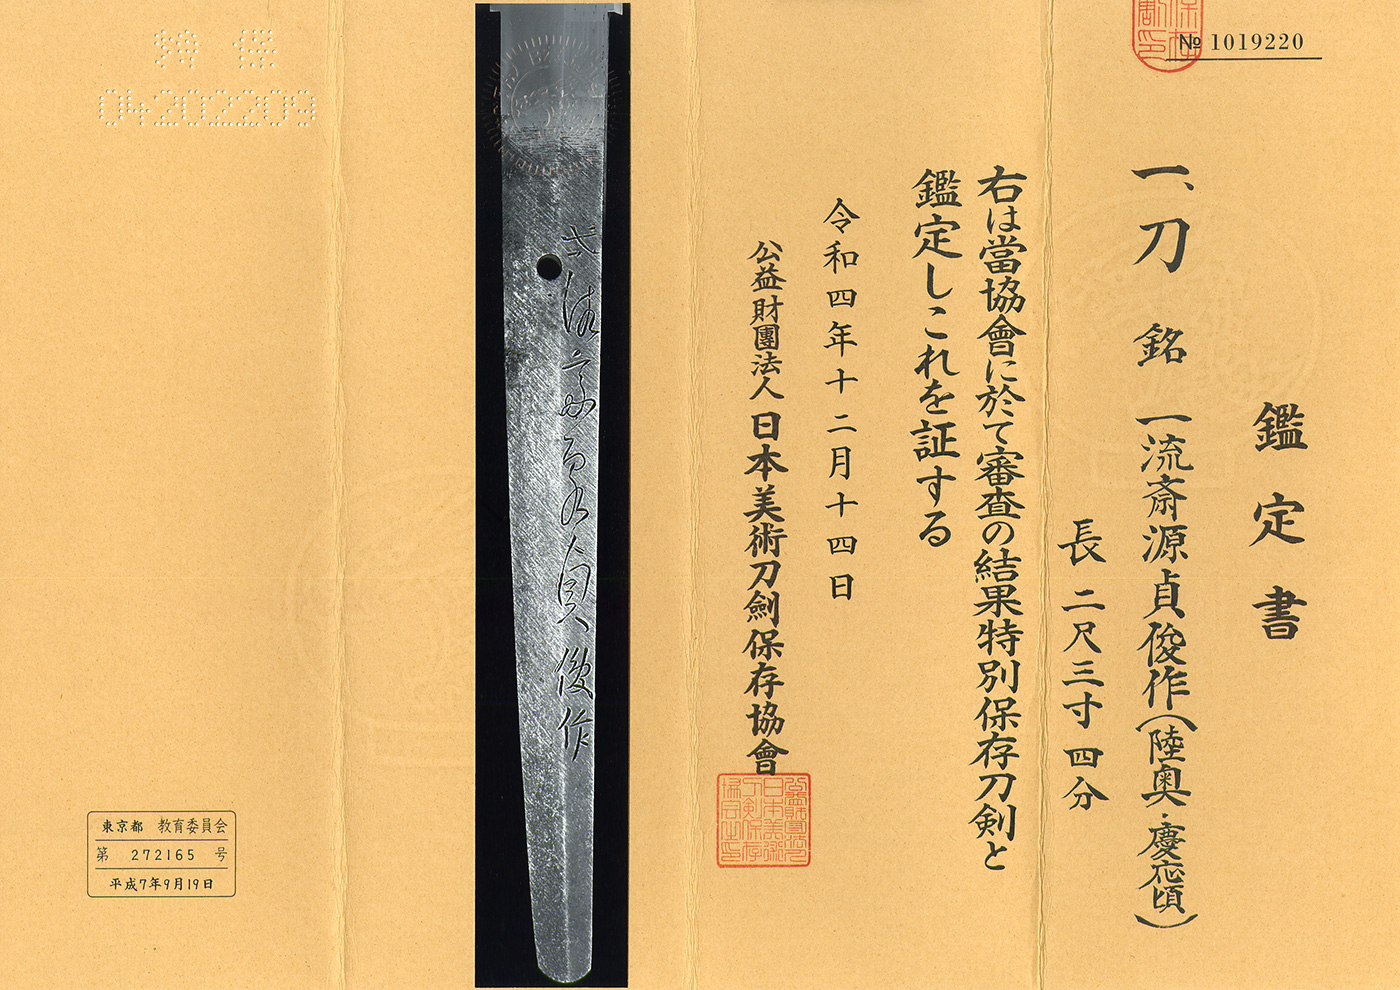 № 1019220
鑑定書
一、刀 銘 一流斎源貞俊作(陸奥・慶応頃)
長 二尺三寸四分
右は當協會に於て審査の結果特別保存刀剣と
鑑定しこれを証する
令和四年十二月十四日
公益財團法人 日本美術刀劍保存協會
貞俊作
04202209
東京都 教育委員会
第 272165 号
平成7年9月19日